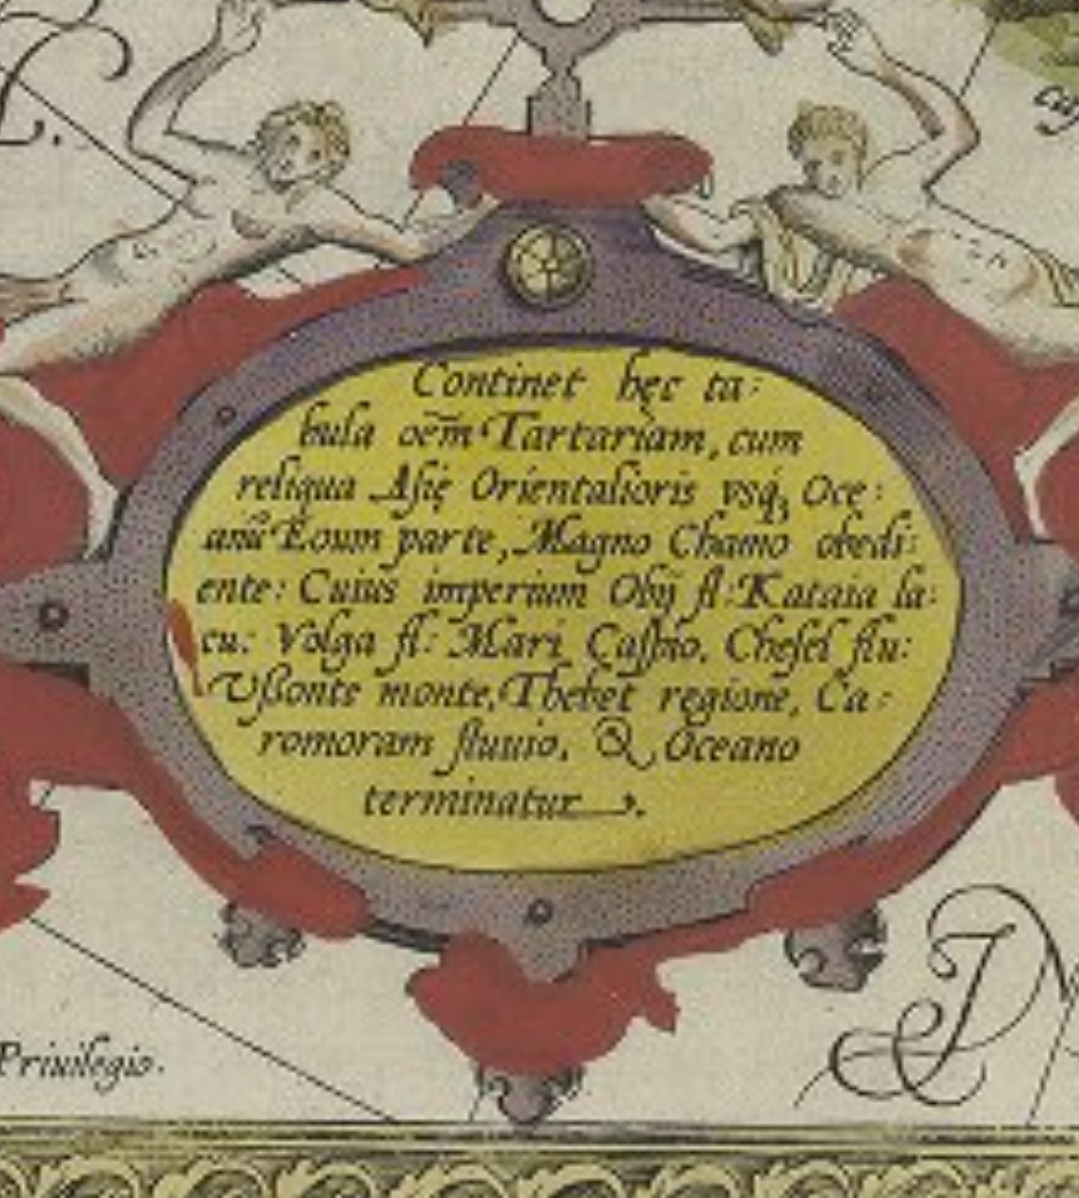 L.
Continet hęc ta:
bula oēm Tartariam, cum
reliqua Asię Orientalioris vsq₃ Oce:
anū Eoum parte, Magno Chamo obedi:
ente: Cuius imperium Obij fl: Kataia la:
cu: Volga fl: Mari Caspio, Chesel flu:
Vssonte monte, Thebet regione, Ca:
romoram fluuio, & Oceano
terminatur.
Priuilegio.